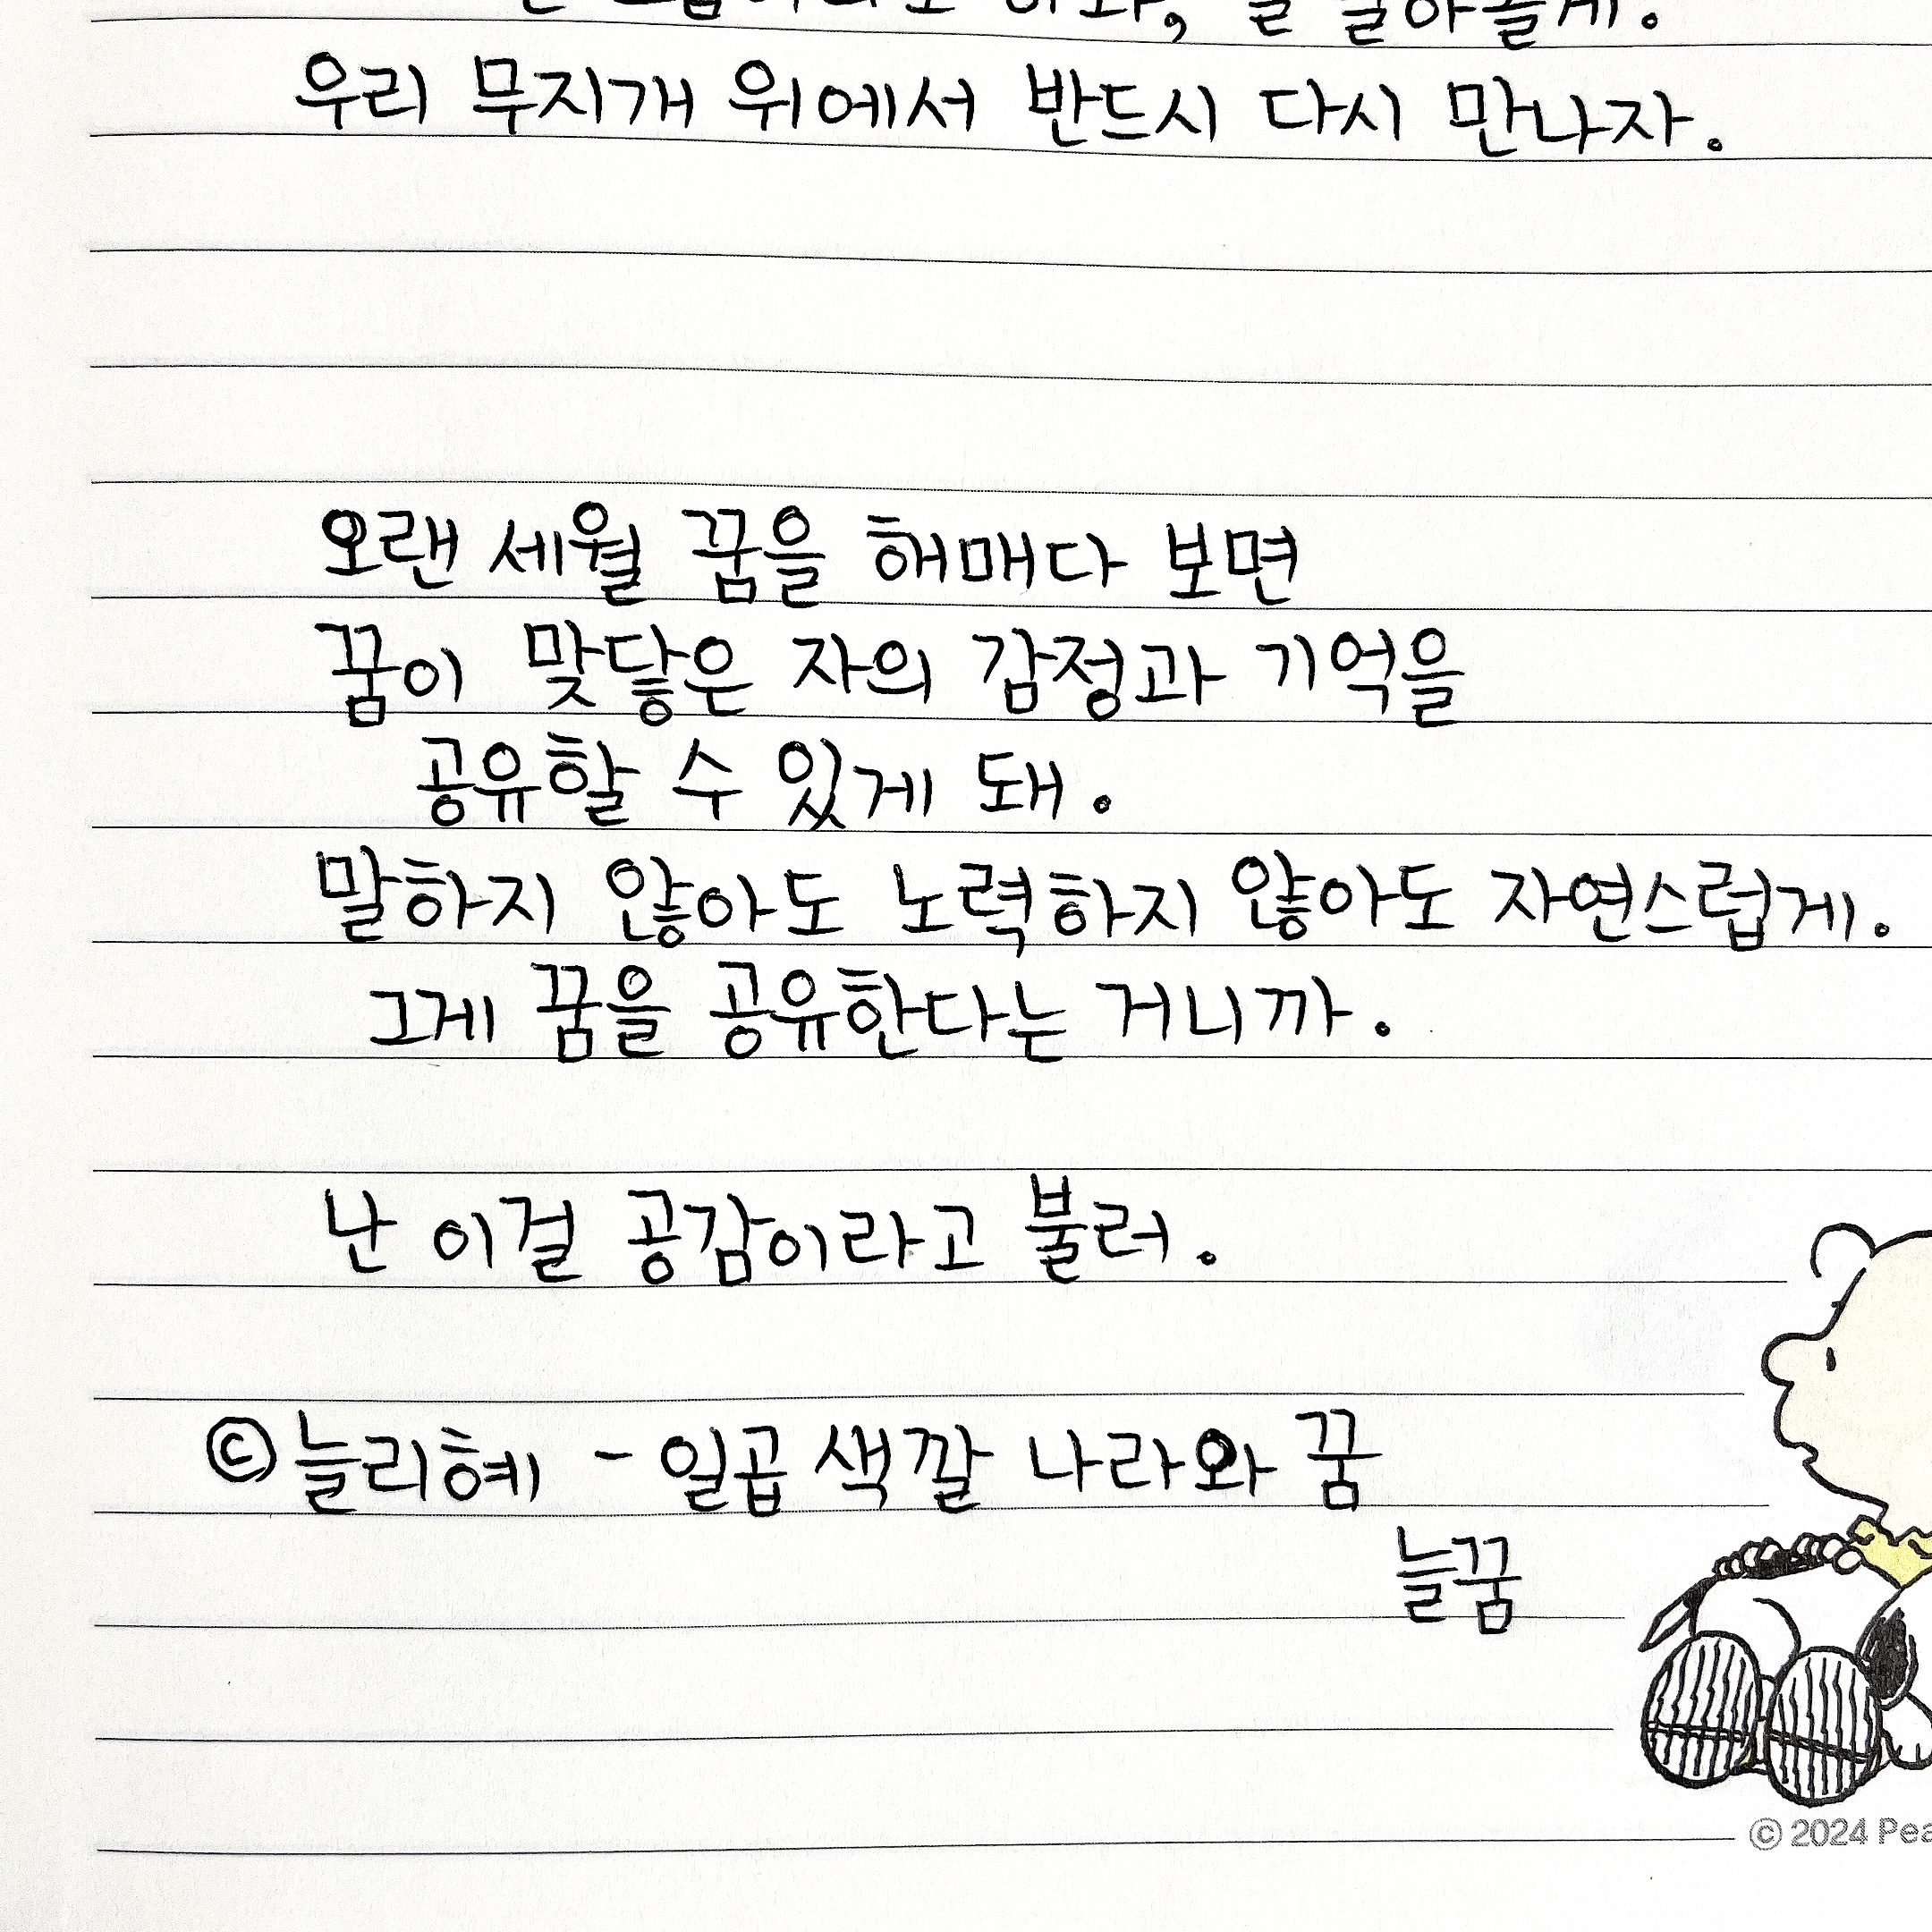 우리 무지개 위에서 반드시 다시 만나자.
오랜 세월 꿈을 해매다 보면
꿈이 맞닿은 자의 감정과 기억을
공유할 수 있게 돼.
말하지 않아도 노력하지 않아도 자연스럽게.
그게 꿈을 공유한다는 거니까.
난 이걸 공감이라고 불러.
© 늘리혜 - 일곱 색깔 나라와 꿈
늘꿈
© 2024